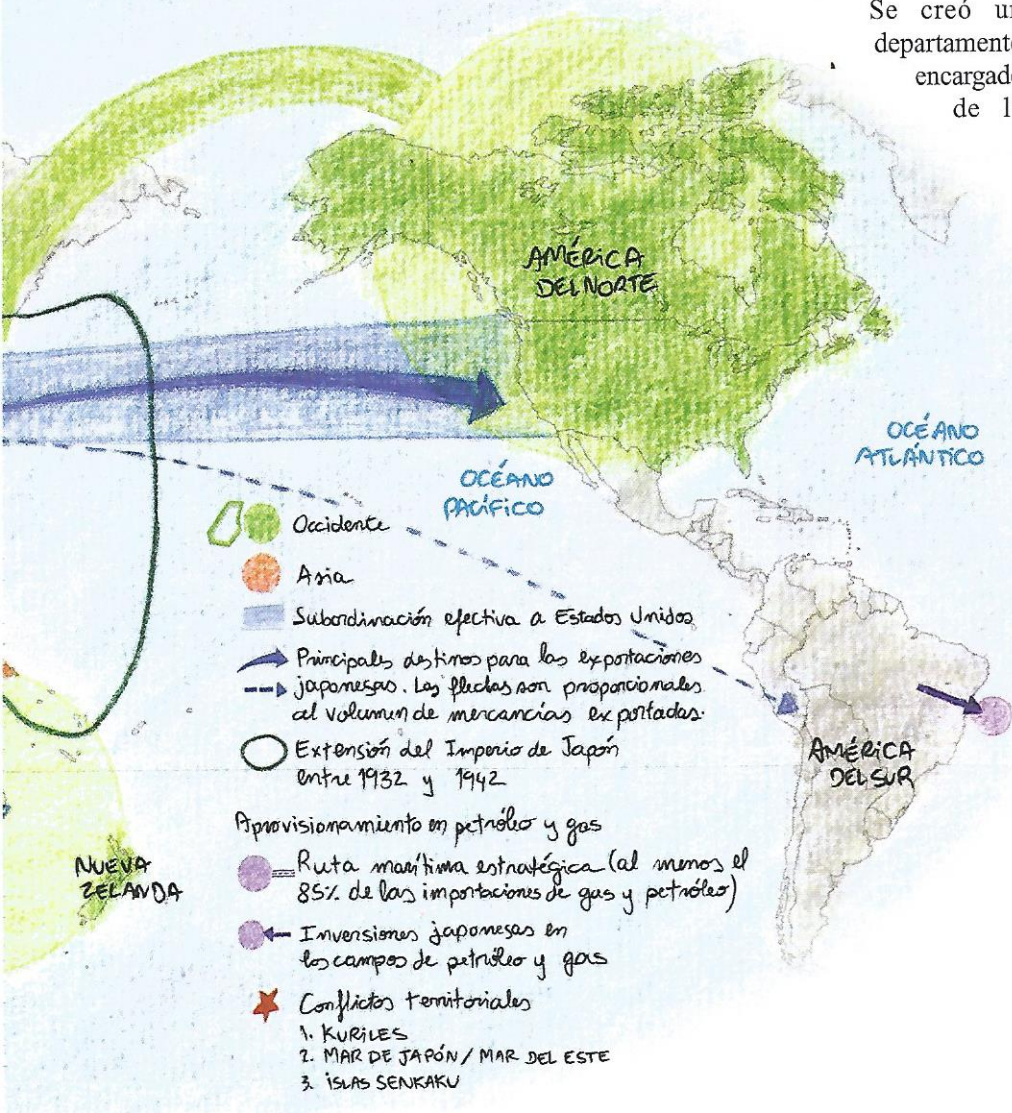 Se creó un
departamento
encargado
de l
AMÉRICA
DEL NORTE
OCÉANO
ATLÁNTICO
OCÉANO
PACÍFICO
Occidente
Asia
Subordinación efectiva a Estados Unidos
Principales destinos para las exportaciones
japonesas. Las flechas son proporcionales
al volumen de mercancías exportadas.
Extensión del Imperio de Japón
entre 1932 y 1942
AMÉRICA
DEL SUR
Aprovisionamiento en petróleo y gas
NUEVA
ZELANDA
Ruta marítima estratégica (al menos el
85% de las importaciones de gas y petróleo)
Inversiones japonesas en
los campos de petróleo y gas
Conflictos territoriales
1. KURILES
2. MAR DE JAPÓN / MAR DEL ESTE
3. ISLAS SENKAKU